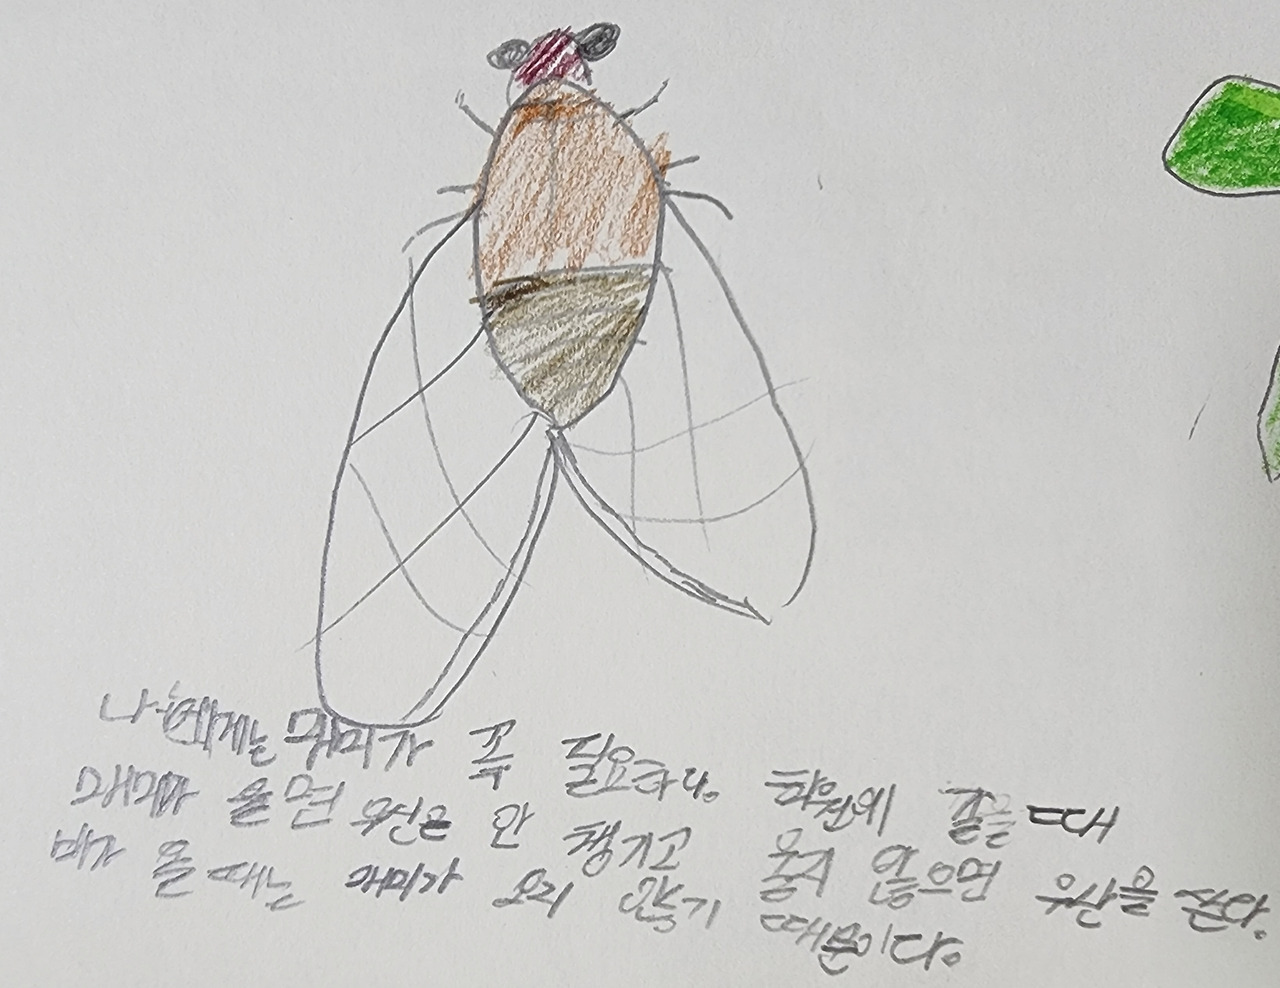 나에게는 매미가 꼭 필요하다. 학원에 갈 때
매미가 울면 우산은 안 챙기고 울지 않으면 우산을 쓴다.
비가 올 때는 매미가 오지 않기 때문이다.